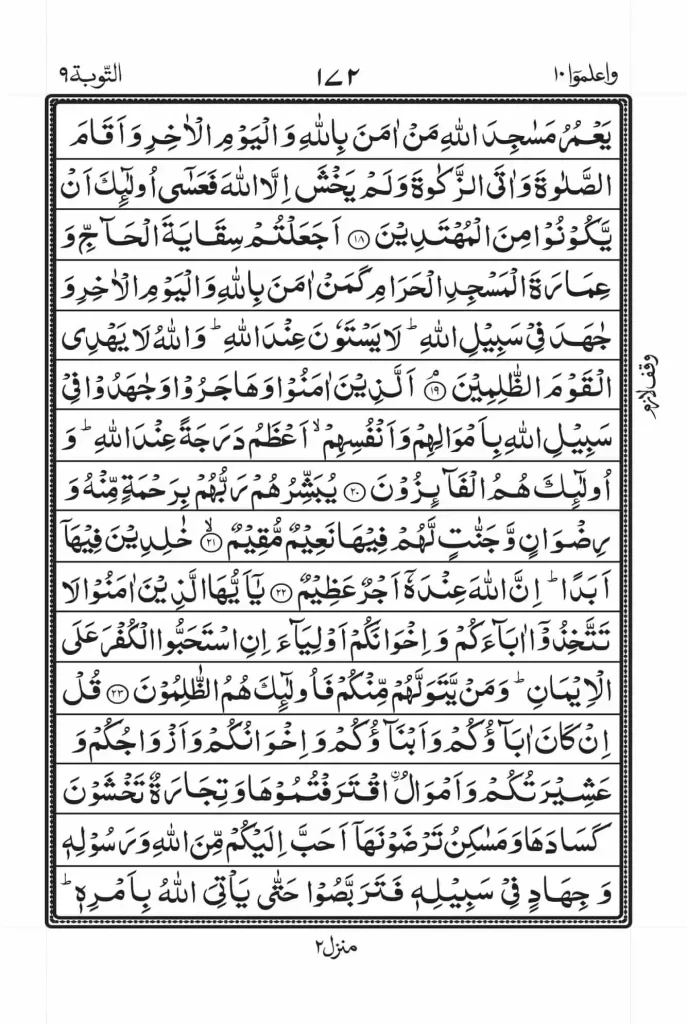 واعلموٓا ١٠
١٧٢
التوبة ٩
يَعۡمُرُ مَسٰجِدَ اللّٰهِ مَنۡ اٰمَنَ بِاللّٰهِ وَالۡيَوۡمِ الۡاٰخِرِ وَاَقَامَ
الصَّلٰوةَ وَاٰتَى الزَّكٰوةَ وَلَمۡ يَخۡشَ اِلَّا اللّٰهَ فَعَسٰٓى اُولٰٓئِكَ اَنۡ
يَّكُوۡنُوۡا مِنَ الۡمُهۡتَدِيۡنَ ۝١٨ اَجَعَلۡتُمۡ سِقَايَةَ الۡحَآجِّ وَ
عِمَارَةَ الۡمَسۡجِدِ الۡحَرَامِ كَمَنۡ اٰمَنَ بِاللّٰهِ وَالۡيَوۡمِ الۡاٰخِرِ وَ
جٰهَدَ فِىۡ سَبِيۡلِ اللّٰهِ ؕ لَا يَسۡتَوٗنَ عِنۡدَ اللّٰهِ ؕ وَاللّٰهُ لَا يَهۡدِى
الۡقَوۡمَ الظّٰلِمِيۡنَ ۝١٩ۘ اَلَّذِيۡنَ اٰمَنُوۡا وَهَاجَرُوۡا وَجٰهَدُوۡا فِىۡ
وقف لازم
سَبِيۡلِ اللّٰهِ بِاَمۡوَالِهِمۡ وَاَنۡفُسِهِمۡ ۙ اَعۡظَمُ دَرَجَةً عِنۡدَ اللّٰهِ ؕ وَ
اُولٰٓئِكَ هُمُ الۡفَآئِزُوۡنَ ۝٢٠ يُبَشِّرُهُمۡ رَبُّهُمۡ بِرَحۡمَةٍ مِّنۡهُ وَ
رِضۡوَانٍ وَّجَنّٰتٍ لَّهُمۡ فِيۡهَا نَعِيۡمٌ مُّقِيۡمٌ ۝٢١ۙ خٰلِدِيۡنَ فِيۡهَاۤ
اَبَدًا ؕ اِنَّ اللّٰهَ عِنۡدَهٗۤ اَجۡرٌ عَظِيۡمٌ ۝٢٢ يٰۤاَيُّهَا الَّذِيۡنَ اٰمَنُوۡا لَا
تَتَّخِذُوۡۤا اٰبَآءَكُمۡ وَاِخۡوَانَكُمۡ اَوۡلِيَآءَ اِنِ اسۡتَحَبُّوا الۡكُفۡرَ عَلَى
الۡاِيۡمَانِ ؕ وَمَنۡ يَّتَوَلَّهُمۡ مِّنۡكُمۡ فَاُولٰٓئِكَ هُمُ الظّٰلِمُوۡنَ ۝٢٣ قُلۡ
اِنۡ كَانَ اٰبَآؤُكُمۡ وَاَبۡنَآؤُكُمۡ وَاِخۡوَانُكُمۡ وَاَزۡوَاجُكُمۡ وَ
عَشِيۡرَتُكُمۡ وَاَمۡوَالُ ۨاقۡتَرَفۡتُمُوۡهَا وَتِجَارَةٌ تَخۡشَوۡنَ
كَسَادَهَا وَمَسٰكِنُ تَرۡضَوۡنَهَاۤ اَحَبَّ اِلَيۡكُمۡ مِّنَ اللّٰهِ وَرَسُوۡلِهٖ
وَجِهَادٍ فِىۡ سَبِيۡلِهٖ فَتَرَبَّصُوۡا حَتّٰى يَاۡتِىَ اللّٰهُ بِاَمۡرِهٖ ؕ
منزل ٢